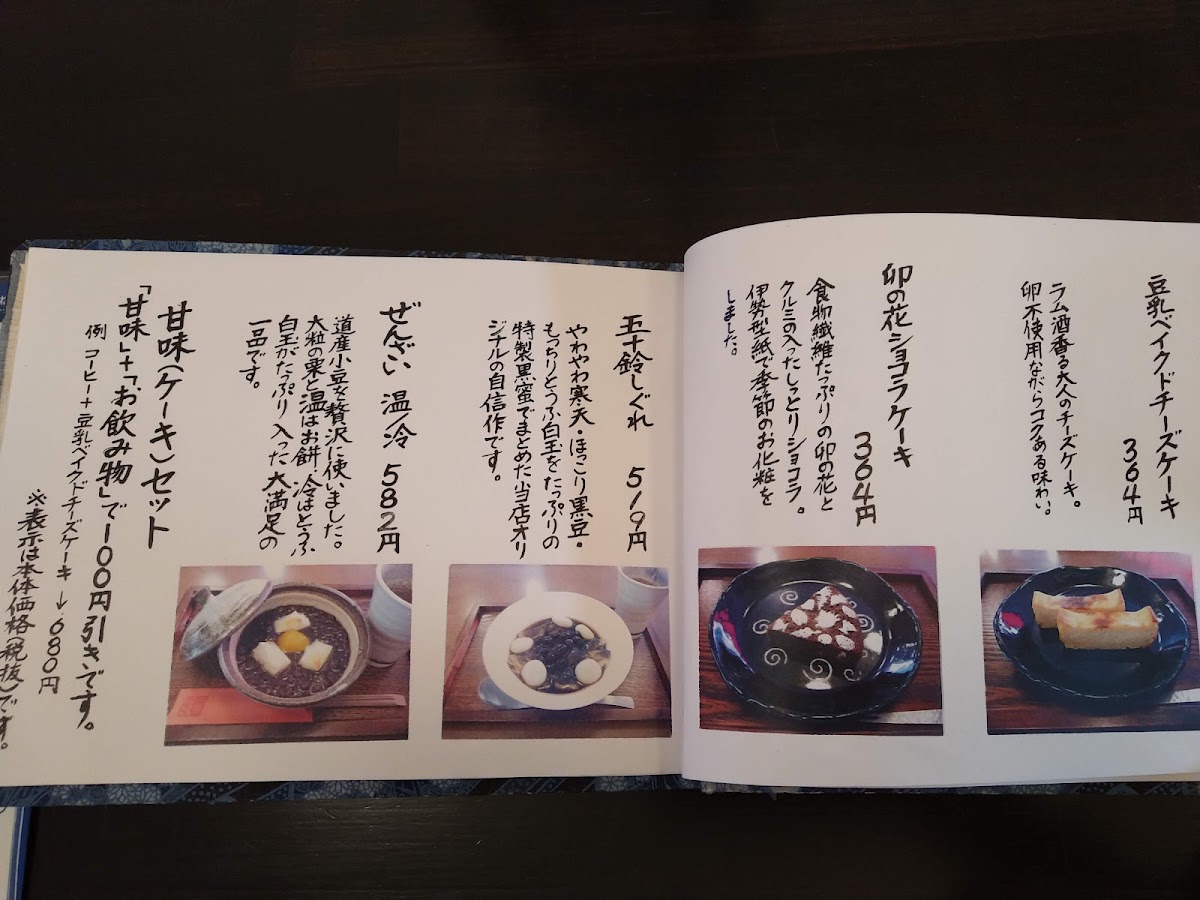 豆乳ベイクドチーズケーキ
364円
ラム酒香る大人のチーズケーキ。
卵不使用ながらコクある味わい。
卯の花ショコラケーキ
364円
食物繊維たっぷりの卯の花と
クルミの入ったしっとりショコラ。
伊勢型紙で季節のお化粧を
しました。
五十鈴しぐれ 519円
やわやわ寒天・ほっこり黒豆・
もっちりとうふ白玉をたっぷりの
特製黒蜜でまとめた当店オリ
ジナルの自信作です。
ぜんざい 温/冷 582円
道産小豆を贅沢に使いました。
大粒の栗と温はお餅、冷はとうふ
白玉がたっぷり入った大満足の
一品です。
甘味(ケーキ)セット
「甘味」+「お飲み物」で100円引きです。
例 コーヒー+豆乳ベイクドチーズケーキ→680円
※表示は本体価格(税抜)です。